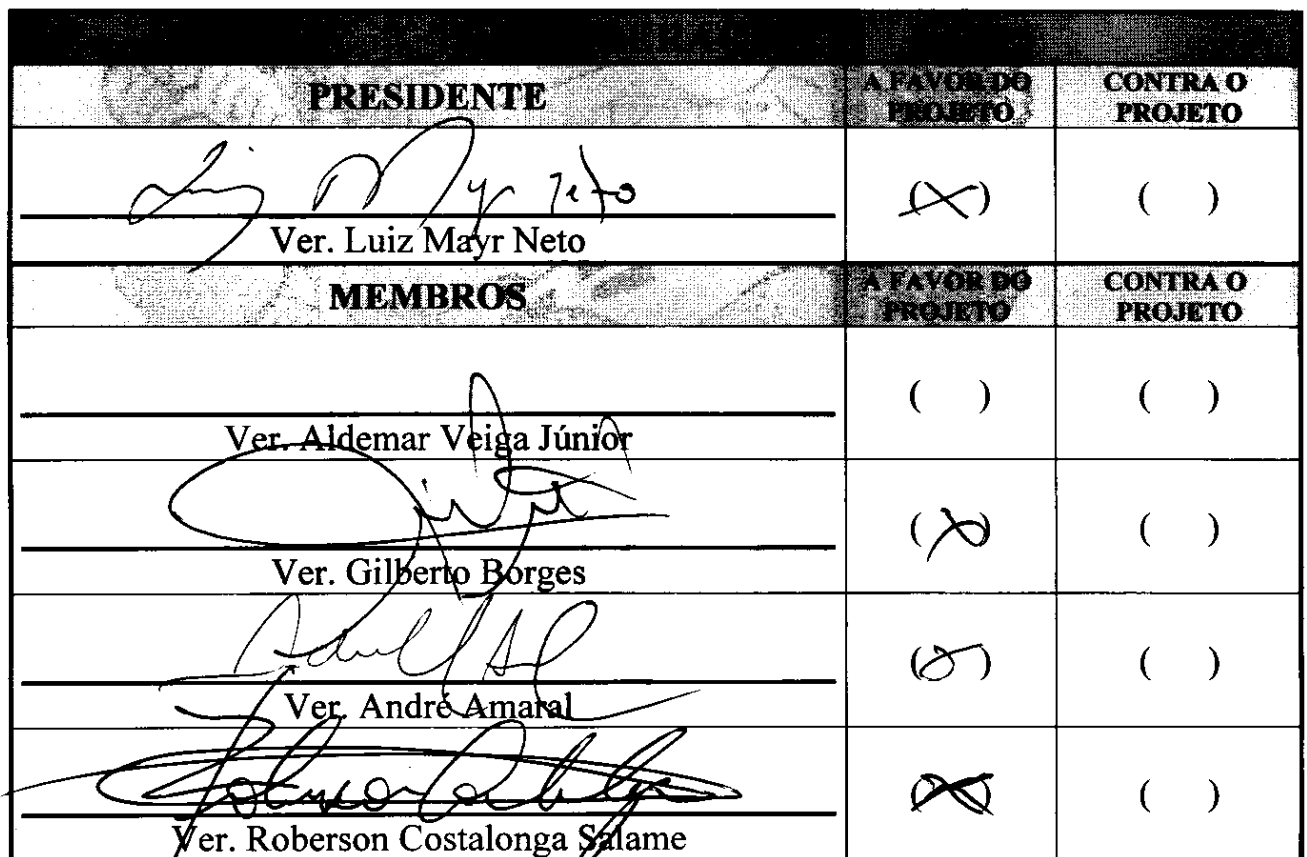 PRESIDENTE A FAVOR DO PROJETO CONTRA O PROJETO
Luiz Mayr Neto (X) ( )
Ver. Luiz Mayr Neto
MEMBROS A FAVOR DO PROJETO CONTRA O PROJETO
( ) ( )
Ver. Aldemar Veiga Júnior
(X) ( )
Ver. Gilberto Borges
( ) ( )
Ver. André Amaral
(X) ( )
Ver. Roberson Costalonga Salame